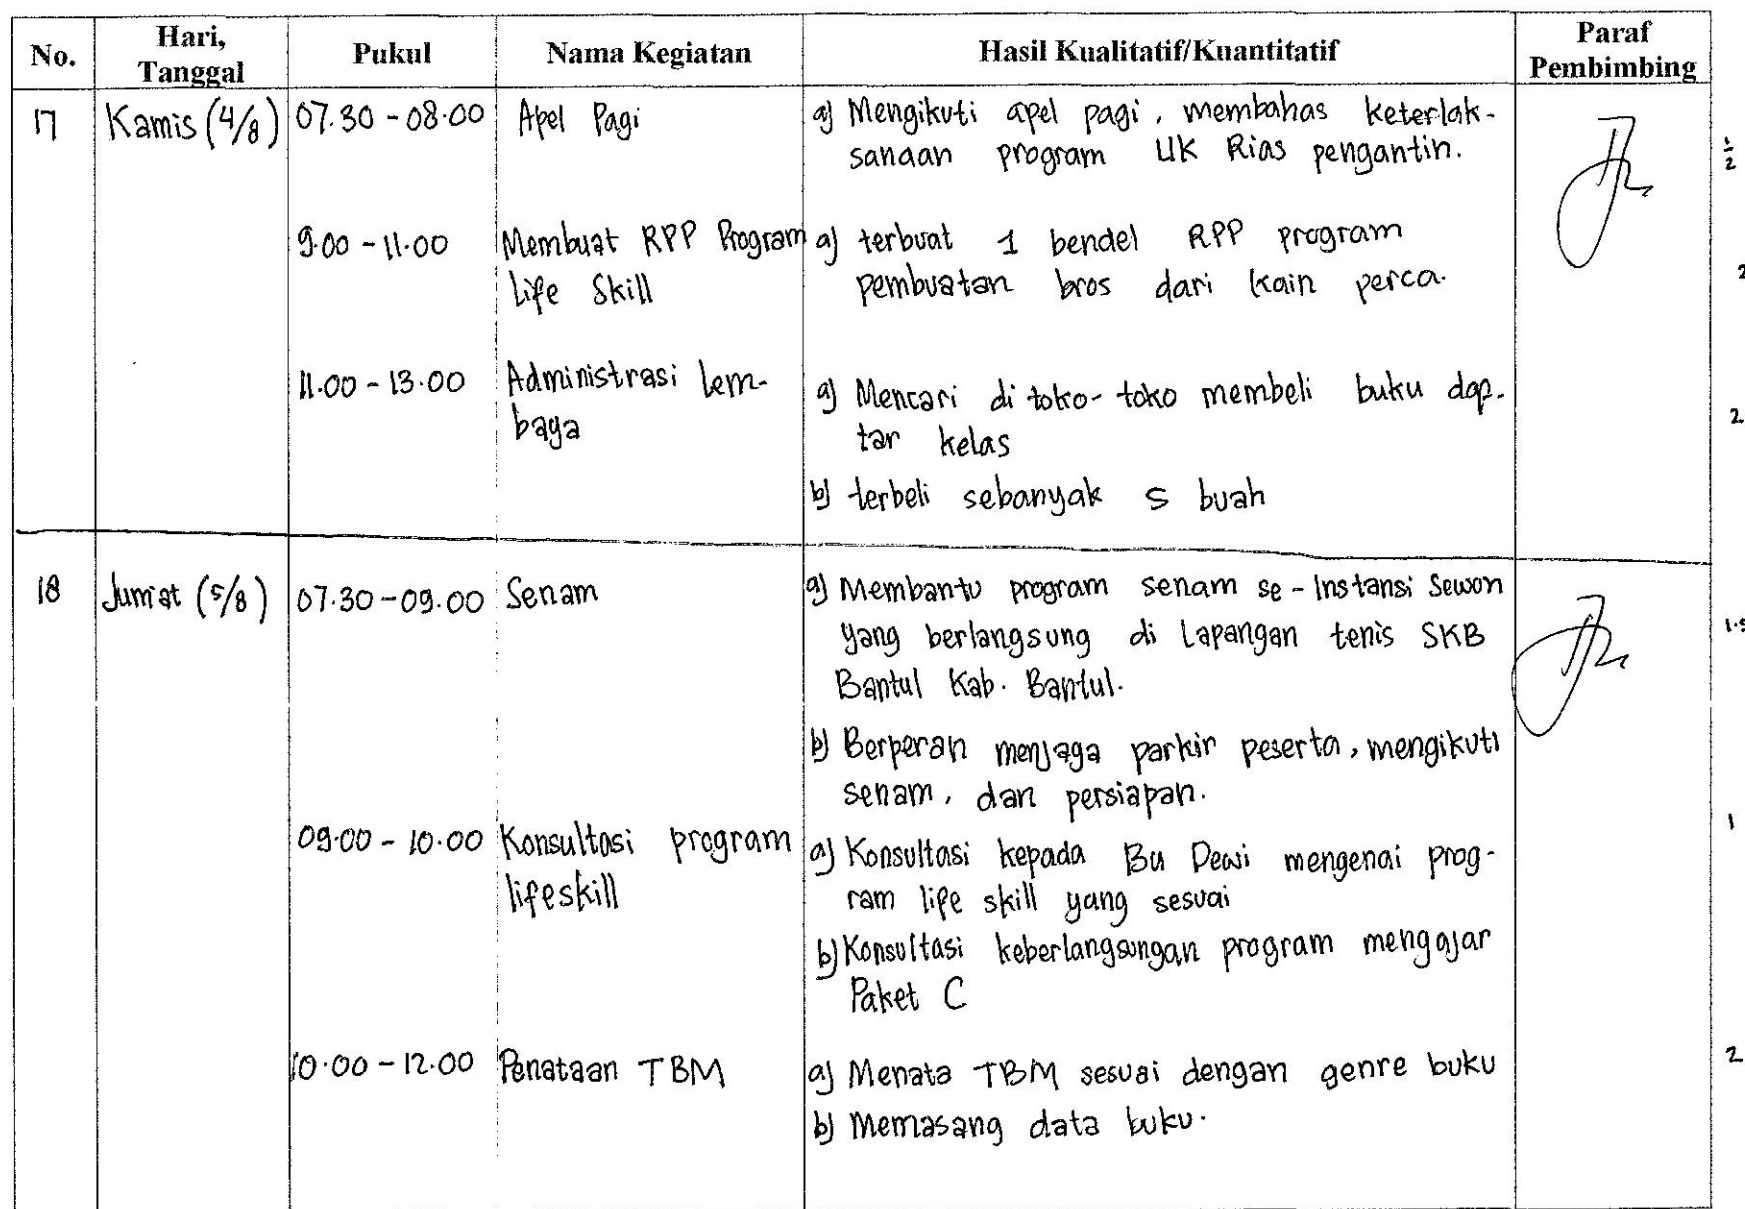 No. Hari, Tanggal Pukul Nama Kegiatan Hasil Kualitatif/Kuantitatif Paraf Pembimbing
17 Kamis (4/8) 07.30 - 08.00 Apel Pagi a) Mengikuti apel pagi, membahas keterlak-
sanaan program UK Rias pengantin. 1/2
9.00 - 11.00 Membuat RPP Program a) terbuat 1 bendel RPP program
Life Skill pembuatan bros dari kain perca. 2
11.00 - 13.00 Administrasi lem- a) Mencari di toko-toko membeli buku dap-
baga tar kelas 2
b) terbeli sebanyak 5 buah
18 Jum'at (5/8) 07.30 - 09.00 Senam a) Membantu program senam se-Instansi Sewon
yang berlangsung di Lapangan tenis SKB 1.5
Bantul Kab. Bantul.
b) Berperan menjaga parkir peserta, mengikuti
senam, dan persiapan.
09.00 - 10.00 Konsultasi program a) Konsultasi kepada Bu Dewi mengenai prog- 1
lifeskill ram life skill yang sesuai
b) Konsultasi keberlangsungan program mengajar
Paket C
10.00 - 12.00 Penataan TBM a) Menata TBM sesuai dengan genre buku 2
b) Memasang data buku.